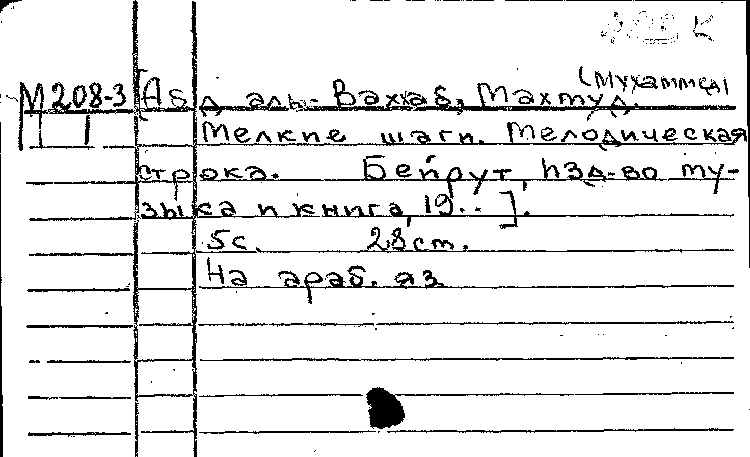 К
(Мухаммед)
М208-3 [Абд аль-Вахаб, Махмуд.
Мелкие шаги. Мелодическая
строка. Бейрут, Изд-во му-
зыка и книга, 19..].
5с. 28см.
На араб. яз.